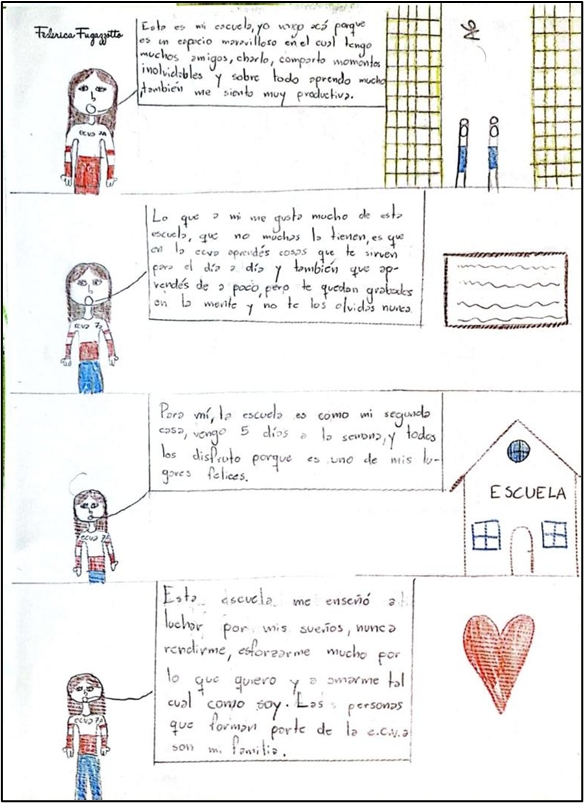 Federica Fugazzotto
Esta es mi escuela, yo vengo acá porque
es un espacio maravilloso en el cual tengo
muchos amigos, charlo, comparto momentos
inolvidables y sobre todo aprendo mucho
también me siento muy productiva.
A6
Lo que a mi me gusta mucho de esta
escuela, que no muchas la tienen, es que
en la ecva aprendés cosas que te sirven
para el día a día y también que apr-
vendés de a poco, pero te quedan grabados
en la mente y no te los olvidas nunca
Para mí, la escuela es como mi segunda
casa, vengo 5 días a la semana, y todos
los disfruto porque es uno de mis lu-
gares felices.
ESCUELA
Esta escuela me enseñó a
luchar por mis sueños, nunca
rendirme, esforzarme mucho por
lo que quiero y a amarme tal
cual como soy. Las personas
que forman parte de la e.c.v.a
son mi familia.